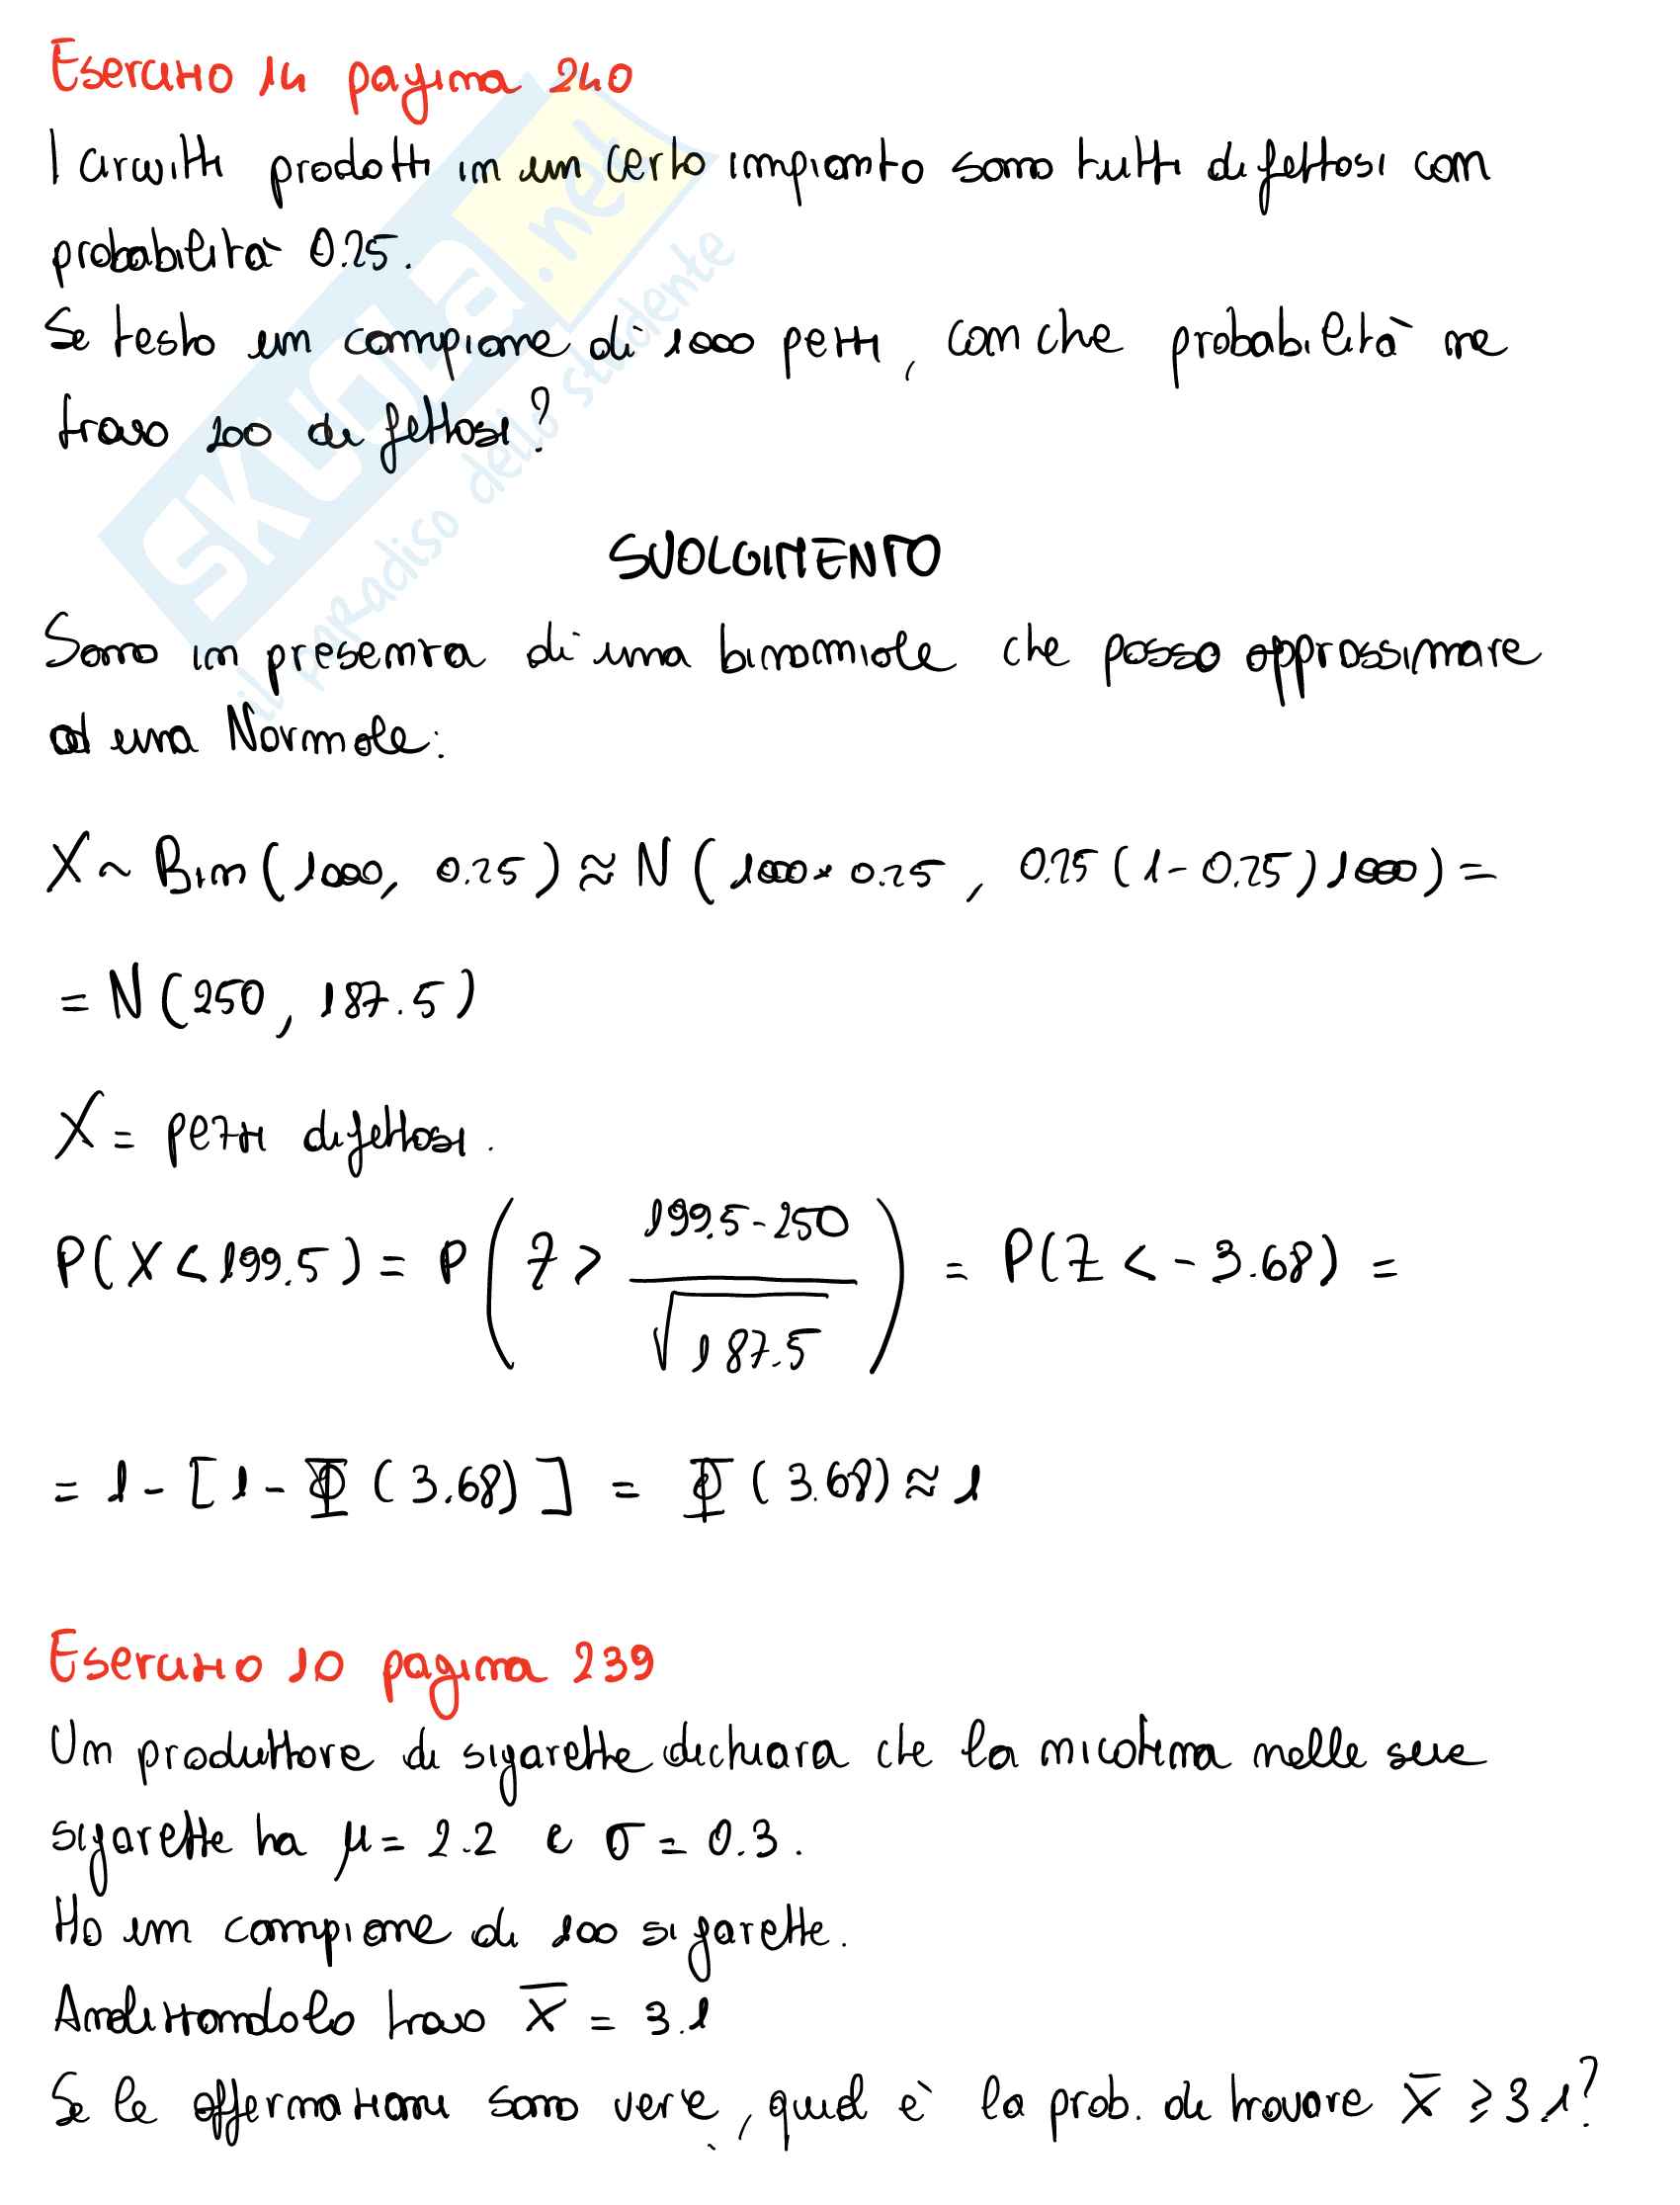 Esercizio 14 pagina 240
I circuiti prodotti in un certo impianto sono tutti difettosi con
probabilità 0.25.
Se testo un campione di 1000 pezzi, con che probabilità ne
trovo 200 difettosi?
SVOLGIMENTO
Sono in presenza di una binomiale che posso approssimare
ad una Normale:
X ~ Bin(1000, 0.25) ≈ N(1000 × 0.25, 0.25(1-0.25)1000) =
= N(250, 187.5)
X = pezzi difettosi.
P(X < 199.5) = P(Z > (199.5-250)/√187.5) = P(Z < -3.68) =
= 1 - [1 - Φ(3.68)] = Φ(3.68) ≈ 1
Esercizio 10 pagina 239
Un produttore di sigarette dichiara che la nicotina nelle sue
sigarette ha μ = 2.2 e σ = 0.3.
Ho un campione di 100 sigarette.
Analizzandolo trovo X̅ = 3.1
Se le affermazioni sono vere, qual è la prob. di trovare X̅ ≥ 3.1?
SKUOLA.net
il paradiso dello studente